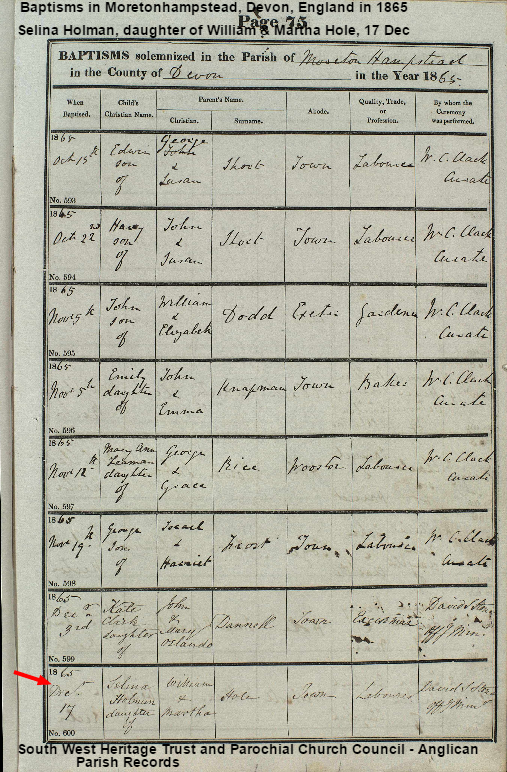 Baptisms in Moretonhampstead, Devon, England in 1865
Page 75
Selina Holman, daughter of William & Martha Hole, 17 Dec
BAPTISMS solemnized in the Parish of Moreton Hampstead
in the County of Devon in the Year 1865.
When Baptized. Child's Christian Name. Parent's Name. Christian. Surname. Abode. Quality, Trade, or Profession. By whom the Ceremony was performed.
1865
Oct 15th Edwin son of George John & Susan Short Town Labourer W. C. Clack Curate
No. 593
1865
Oct 22nd Harry son of John & Susan Short Town Labourer W. C. Clack Curate
No. 594
1865
Novr 5th John son of William & Elizabeth Dodd Exeter Gardener W. C. Clack Curate
No. 595
1865
Novr 5th Emily daughter of John & Emma Knapman Town Baker W. C. Clack Curate
No. 596
1865
Novr 12th Mary Ann daughter of George & Grace Rice Wooston Labourer W. C. Clack Curate
No. 597
1865
Novr 19th George son of Israel & Harriet Frost Town Labourer W. C. Clack Curate
No. 598
1865
Decr 3rd Kate Clark daughter of John & Mary Orlando Dannell Town
No. 599
1865
Decr 17 Selina Holman daughter of William & Martha Hole Town Labourer
No. 600
South West Heritage Trust and Parochial Church Council - Anglican
Parish Records